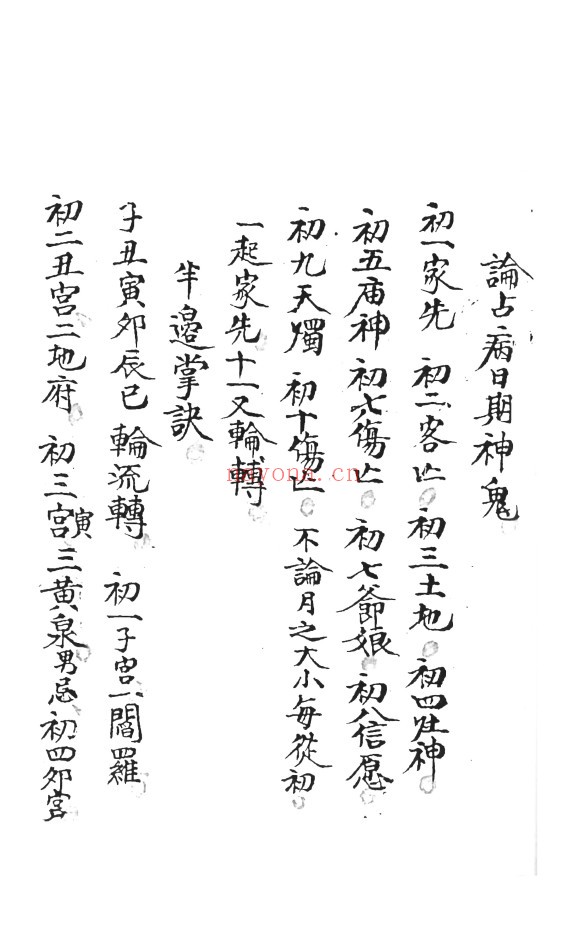 論占病日期神鬼
初一家先 初二客亡 初三土地 初四灶神
初五庙神 初六傷亡 初七爺娘 初八信愿
初九天燭 初十傷亡 不論月之大小每從初
一起家先十一又輪轉
半邉掌訣
子丑寅夘辰巳輪流轉 初一子宮一閻羅
初二丑宮二地府 初三寅宮三黄泉男忌 初四夘宮
nayona.cn